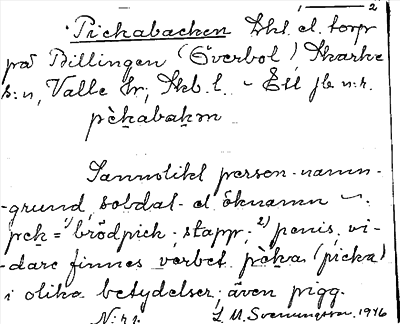 2
Pickabacken Lht. el. torp
på Billingen (Överbol) Skarke
s:n, Valle hr, Skb. l. – Ett jb n:r.
pèkabakɷn
Sannolikt person-namn-
-grund, soldat- el. öknamn
pick = 1) brödpick; stapp; 2) penis, vi-
-dare finnes verbet pèka (picka)
i olika betydelser, även pigg.
N:r 1. L. M. Svenungsson. 1946